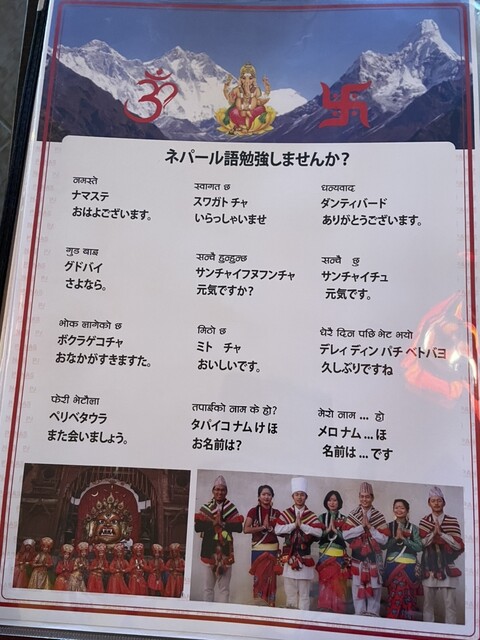 ॐ
ネパール語勉強しませんか？
नमस्ते
ナマステ
おはよございます。
स्वागत छ
スワガト チャ
いらっしゃいませ
धन्यवाद
ダンティバード
ありがとうございます。
गुड बाइ
グドバイ
さよなら。
सन्चै हुनुहुन्छ
サンチャイフヌフンチャ
元気ですか？
सन्चै छु
サンチャイチュ
元気です。
भोक लागेको छ
ボクラゲコチャ
おなかがすきますた。
मिठो छ
ミト チャ
おいしいです。
धेरै दिन पछि भेट भयो
デレィ ディン パチ ベトバヨ
久しぶりですね
फेरी भेटौला
ペリベタウラ
また会いましょう。
तपाईको नाम के हो?
タパイコ ナム け ほ
お名前は？
मेरो नाम ... हो
メロ ナム ... ほ
名前は ... です